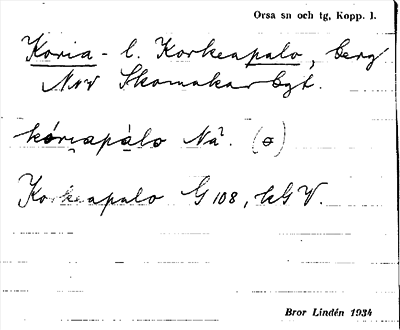 Orsa sn och tg, Kopp. l.
Koria- l. Korkeapalo, berg
NNV Skomakarbyt.
kóriapàlo Nä². (o)
Korkeapalo G 108, kG V.
Bror Lindén 1934